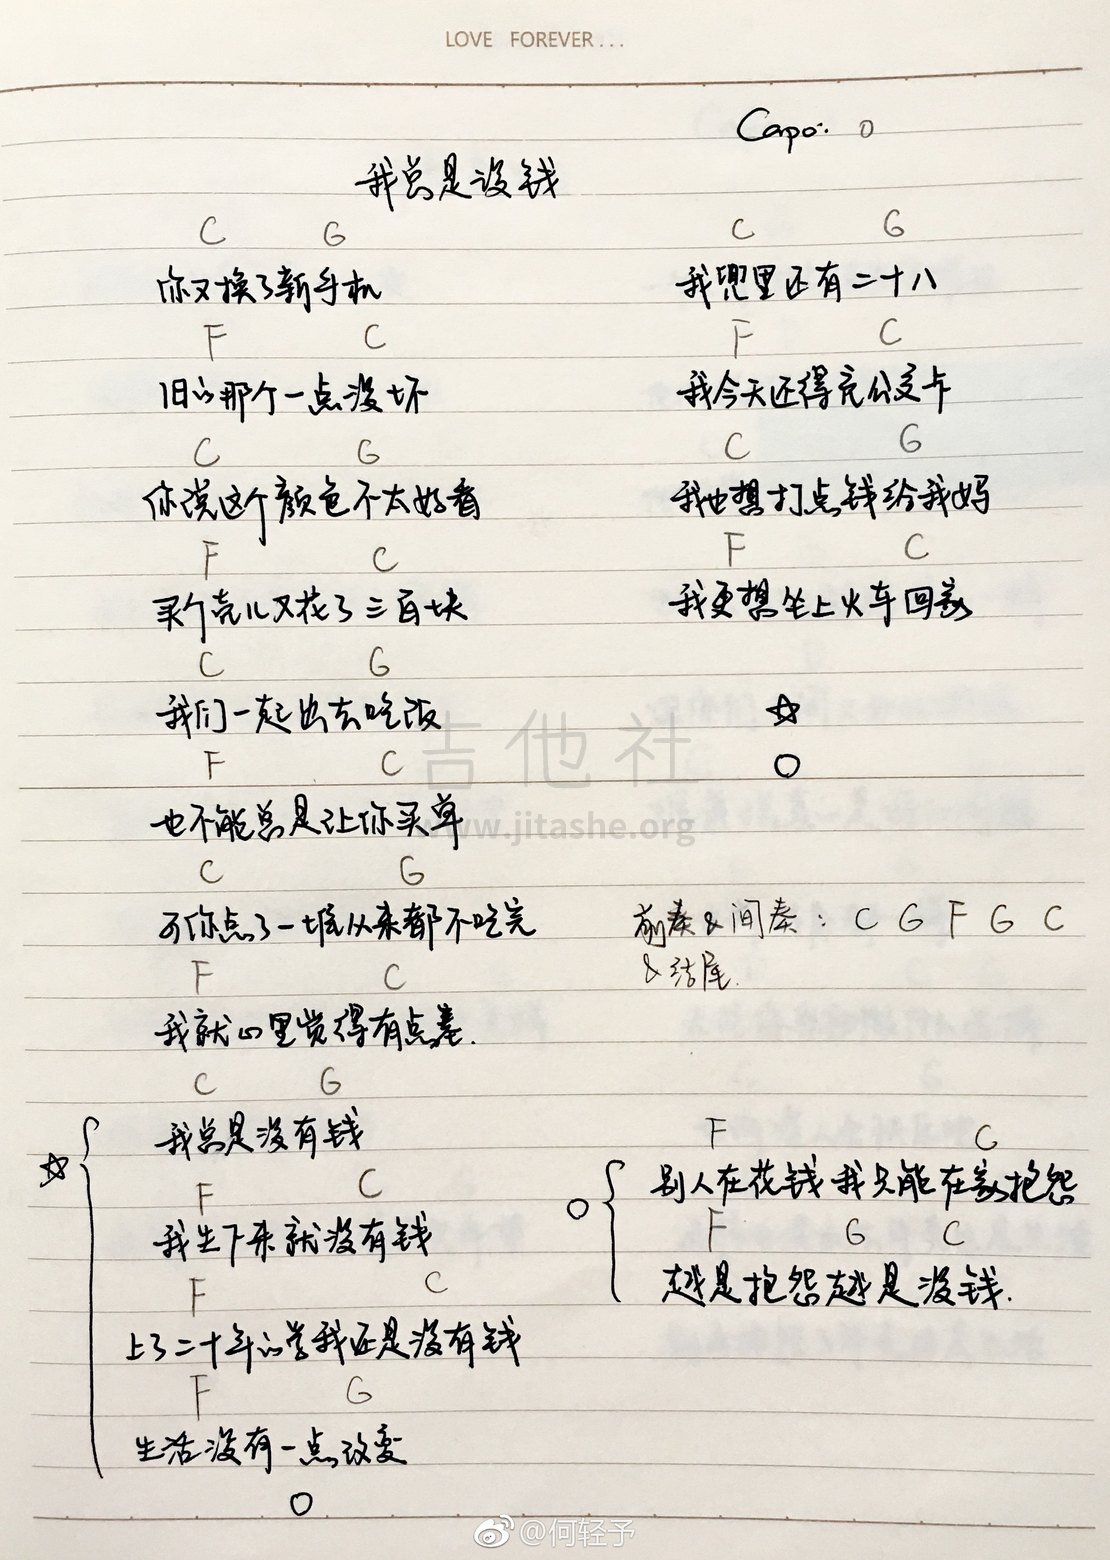 LOVE FOREVER...
Capo: 0
我总是没钱
C G
你又换了新手机
F C
旧的那个一点没坏
C G
你说这个颜色不太好看
F C
买个壳儿又花了三百块
C G
我们一起出去吃饭
F C
也不能总是让你买单
C G
可你点了一堆从来都不吃完
F C
我就心里觉得有点差.
C G
我总是没有钱
☆
F C
我生下来就没有钱
F C
上了二十年的学我还是没有钱
F G
生活没有一点改变
○
C G
我兜里还有二十八
F C
我今天还得充公交卡
C G
我也想打点钱给我妈
F C
我更想坐上火车回家
☆
○
前奏&间奏: C G F G C
&结尾.
F C
别人在花钱我只能在家抱怨
○
F G C
越是抱怨越是没钱.
吉他社
www.jitashe.org
@何轻予